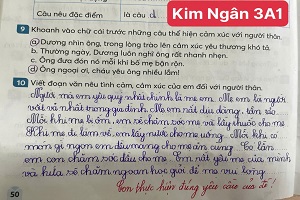 Kim Ngân 3A1
Câu nêu đặc điểm
là câu d
9 Khoanh vào chữ cái trước những câu thể hiện cảm xúc với người thân.
a) Dương nhìn ông, trong lòng trào lên cảm xúc yêu thương khó tả.
b. Thường ngày, Dương luôn nghĩ ông rất nhanh nhẹn.
c. Ông đưa đón nó mỗi khi bố mẹ bận rộn.
d) Ông ngoại ơi, cháu yêu ông nhiều lắm!
10 Viết đoạn văn nêu tình cảm, cảm xúc của em đối với người thân.
Người mà em yêu quý nhất chính là mẹ em. Mẹ em là người
vất vả nhất trong gia đình. Mẹ em rất dịu dàng, tần tảo.
Mỗi khi mẹ bị ốm, em sẽ chăm sóc mẹ và lấy thuốc cho mẹ
Khi mẹ đi làm về, em lấy nước cho mẹ uống. Mỗi khi có
món gì ngon em đều mang cho mẹ ăn cùng. Có lần
em còn chăm sóc đầu cho mẹ. Em rất yêu mẹ của mình
và hứa sẽ chăm ngoan học giỏi để mẹ vui lòng.
Con thực hiện đúng yêu cầu của đề!
50